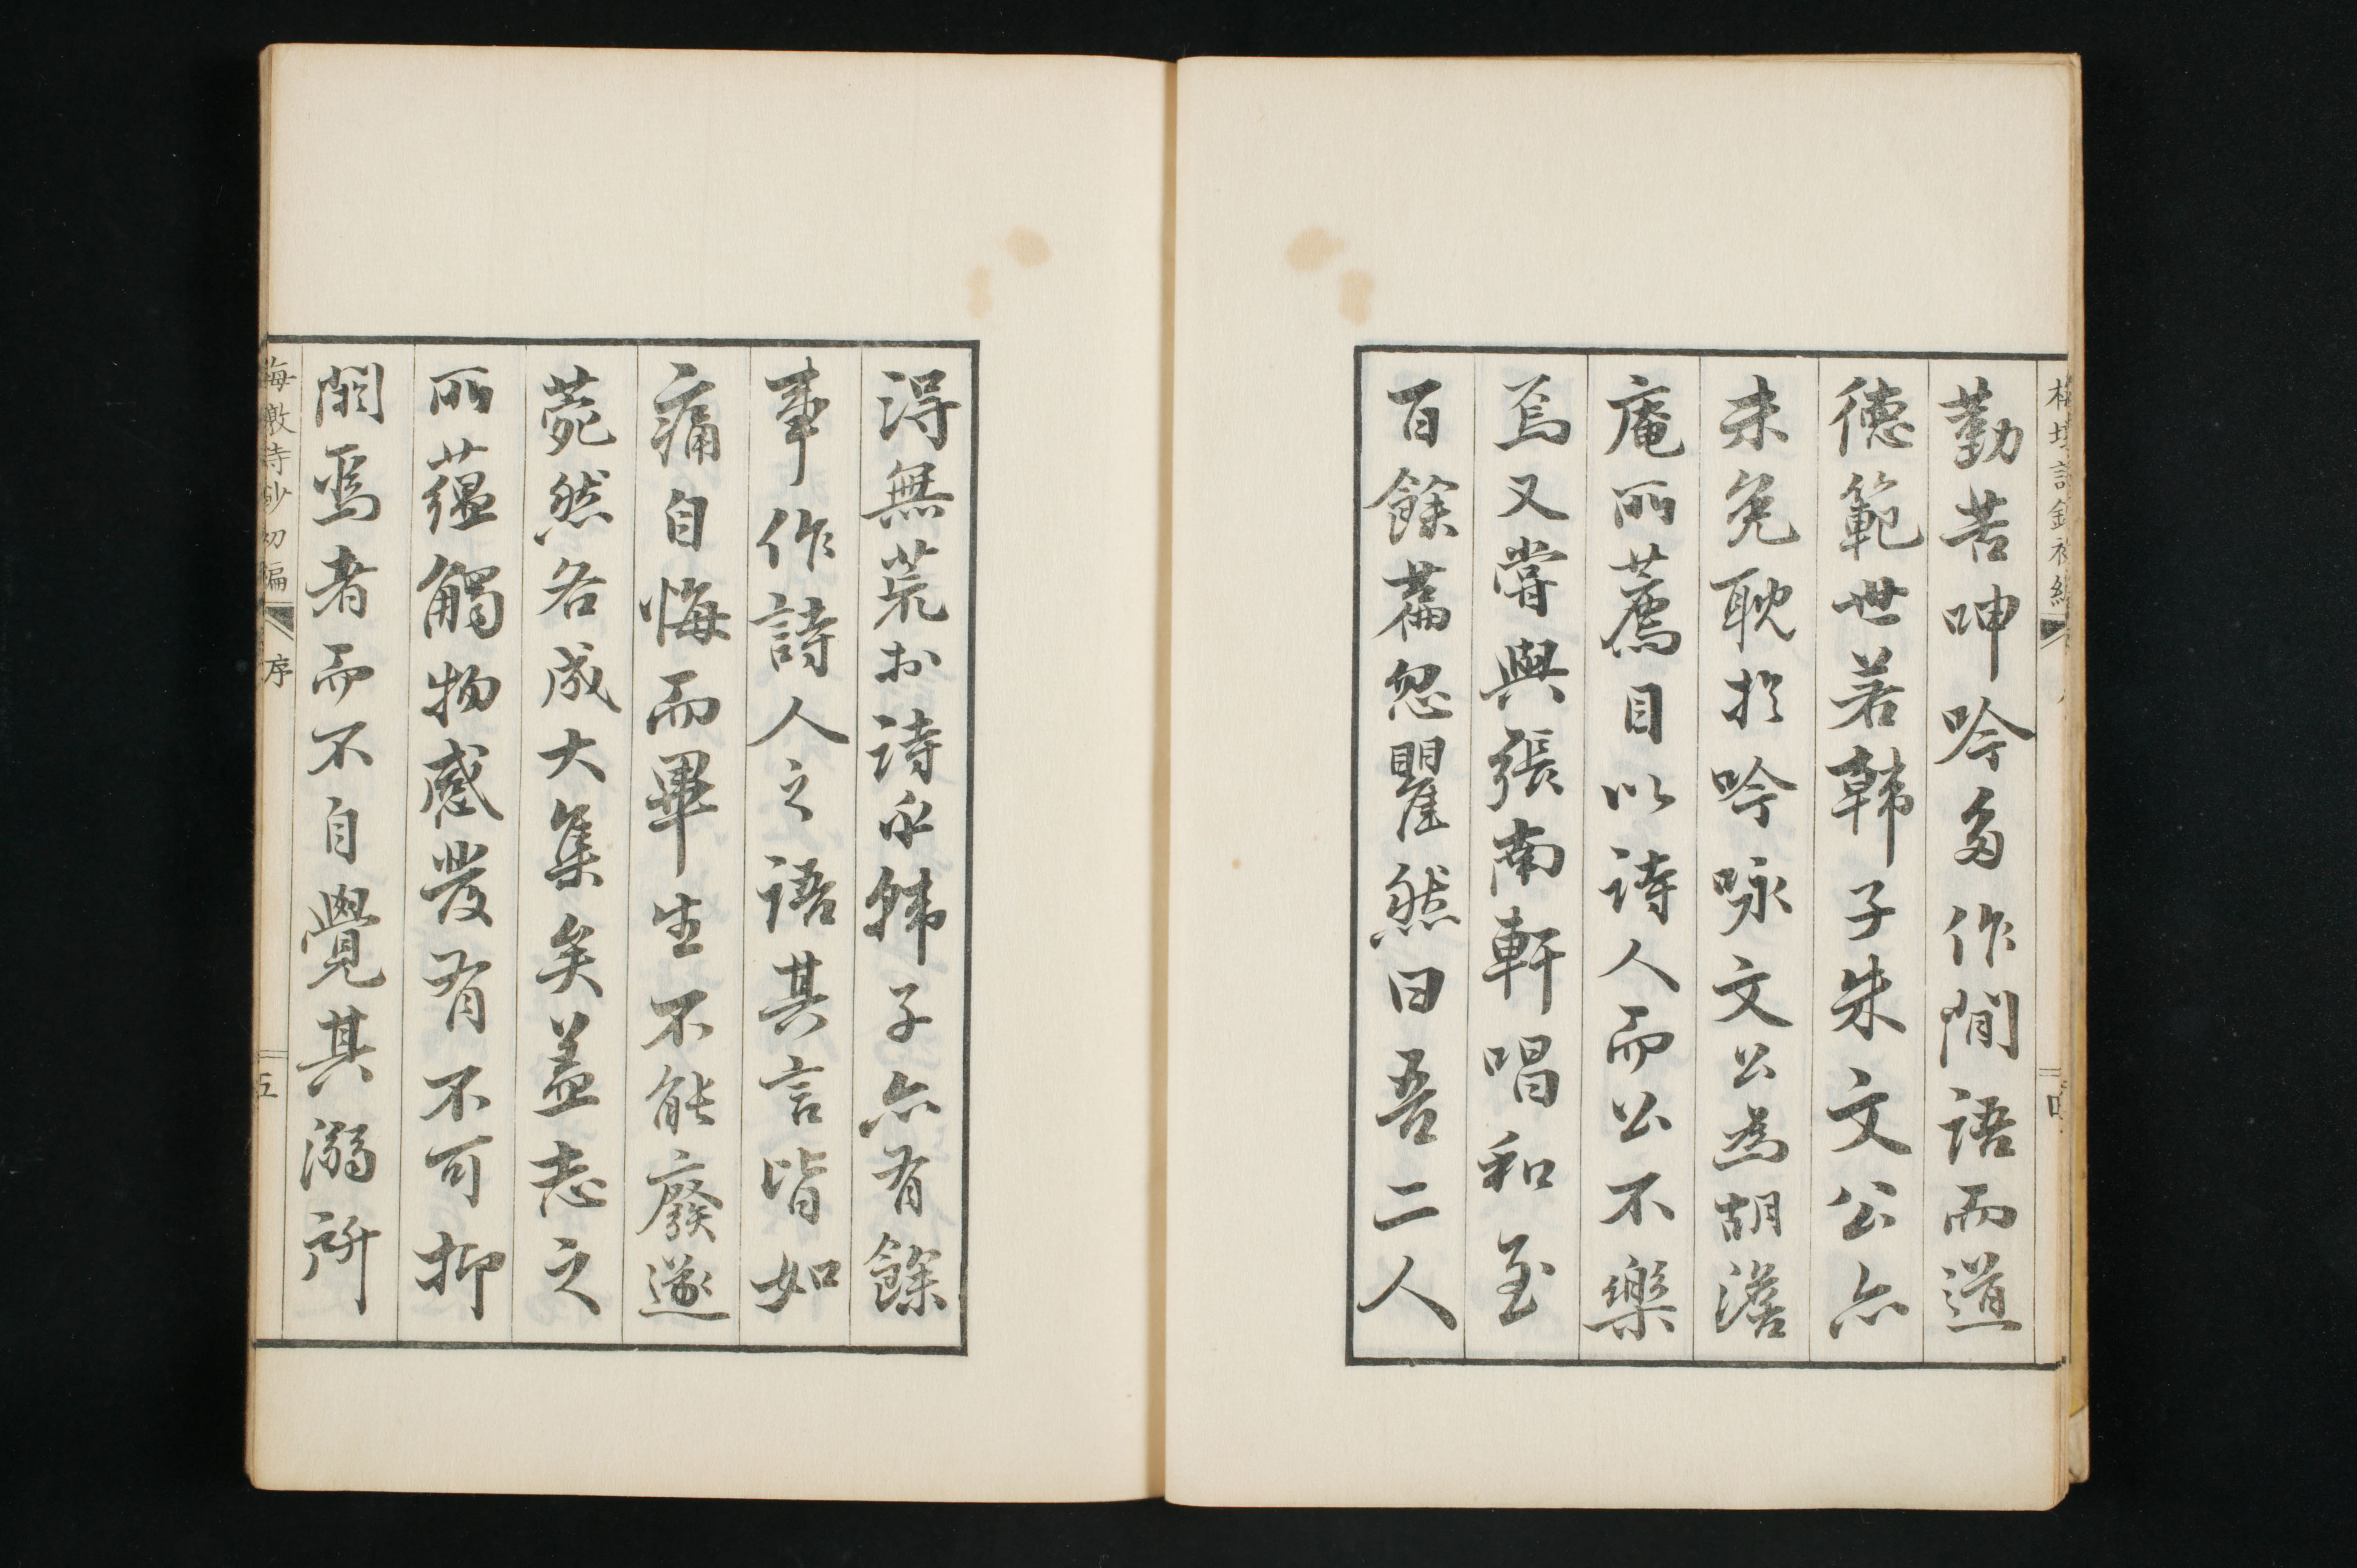 勤苦呻吟多作閒語而道
德範世若韓子朱文公亦
未免耽於吟咏文公為胡澹
庵所薦目以詩人而公不樂
焉又嘗與張南軒唱和至
百餘篇忽瞿然曰吾二人
得無荒於詩乎韓子亦有餘
事作詩人之語其言皆如
痛自悔而畢生不能廢遂
菀然各成大集矣蓋志之
所蘊觸物感發有不可抑
閼焉者而不自覺其溺所
詩鈔初編 序 五